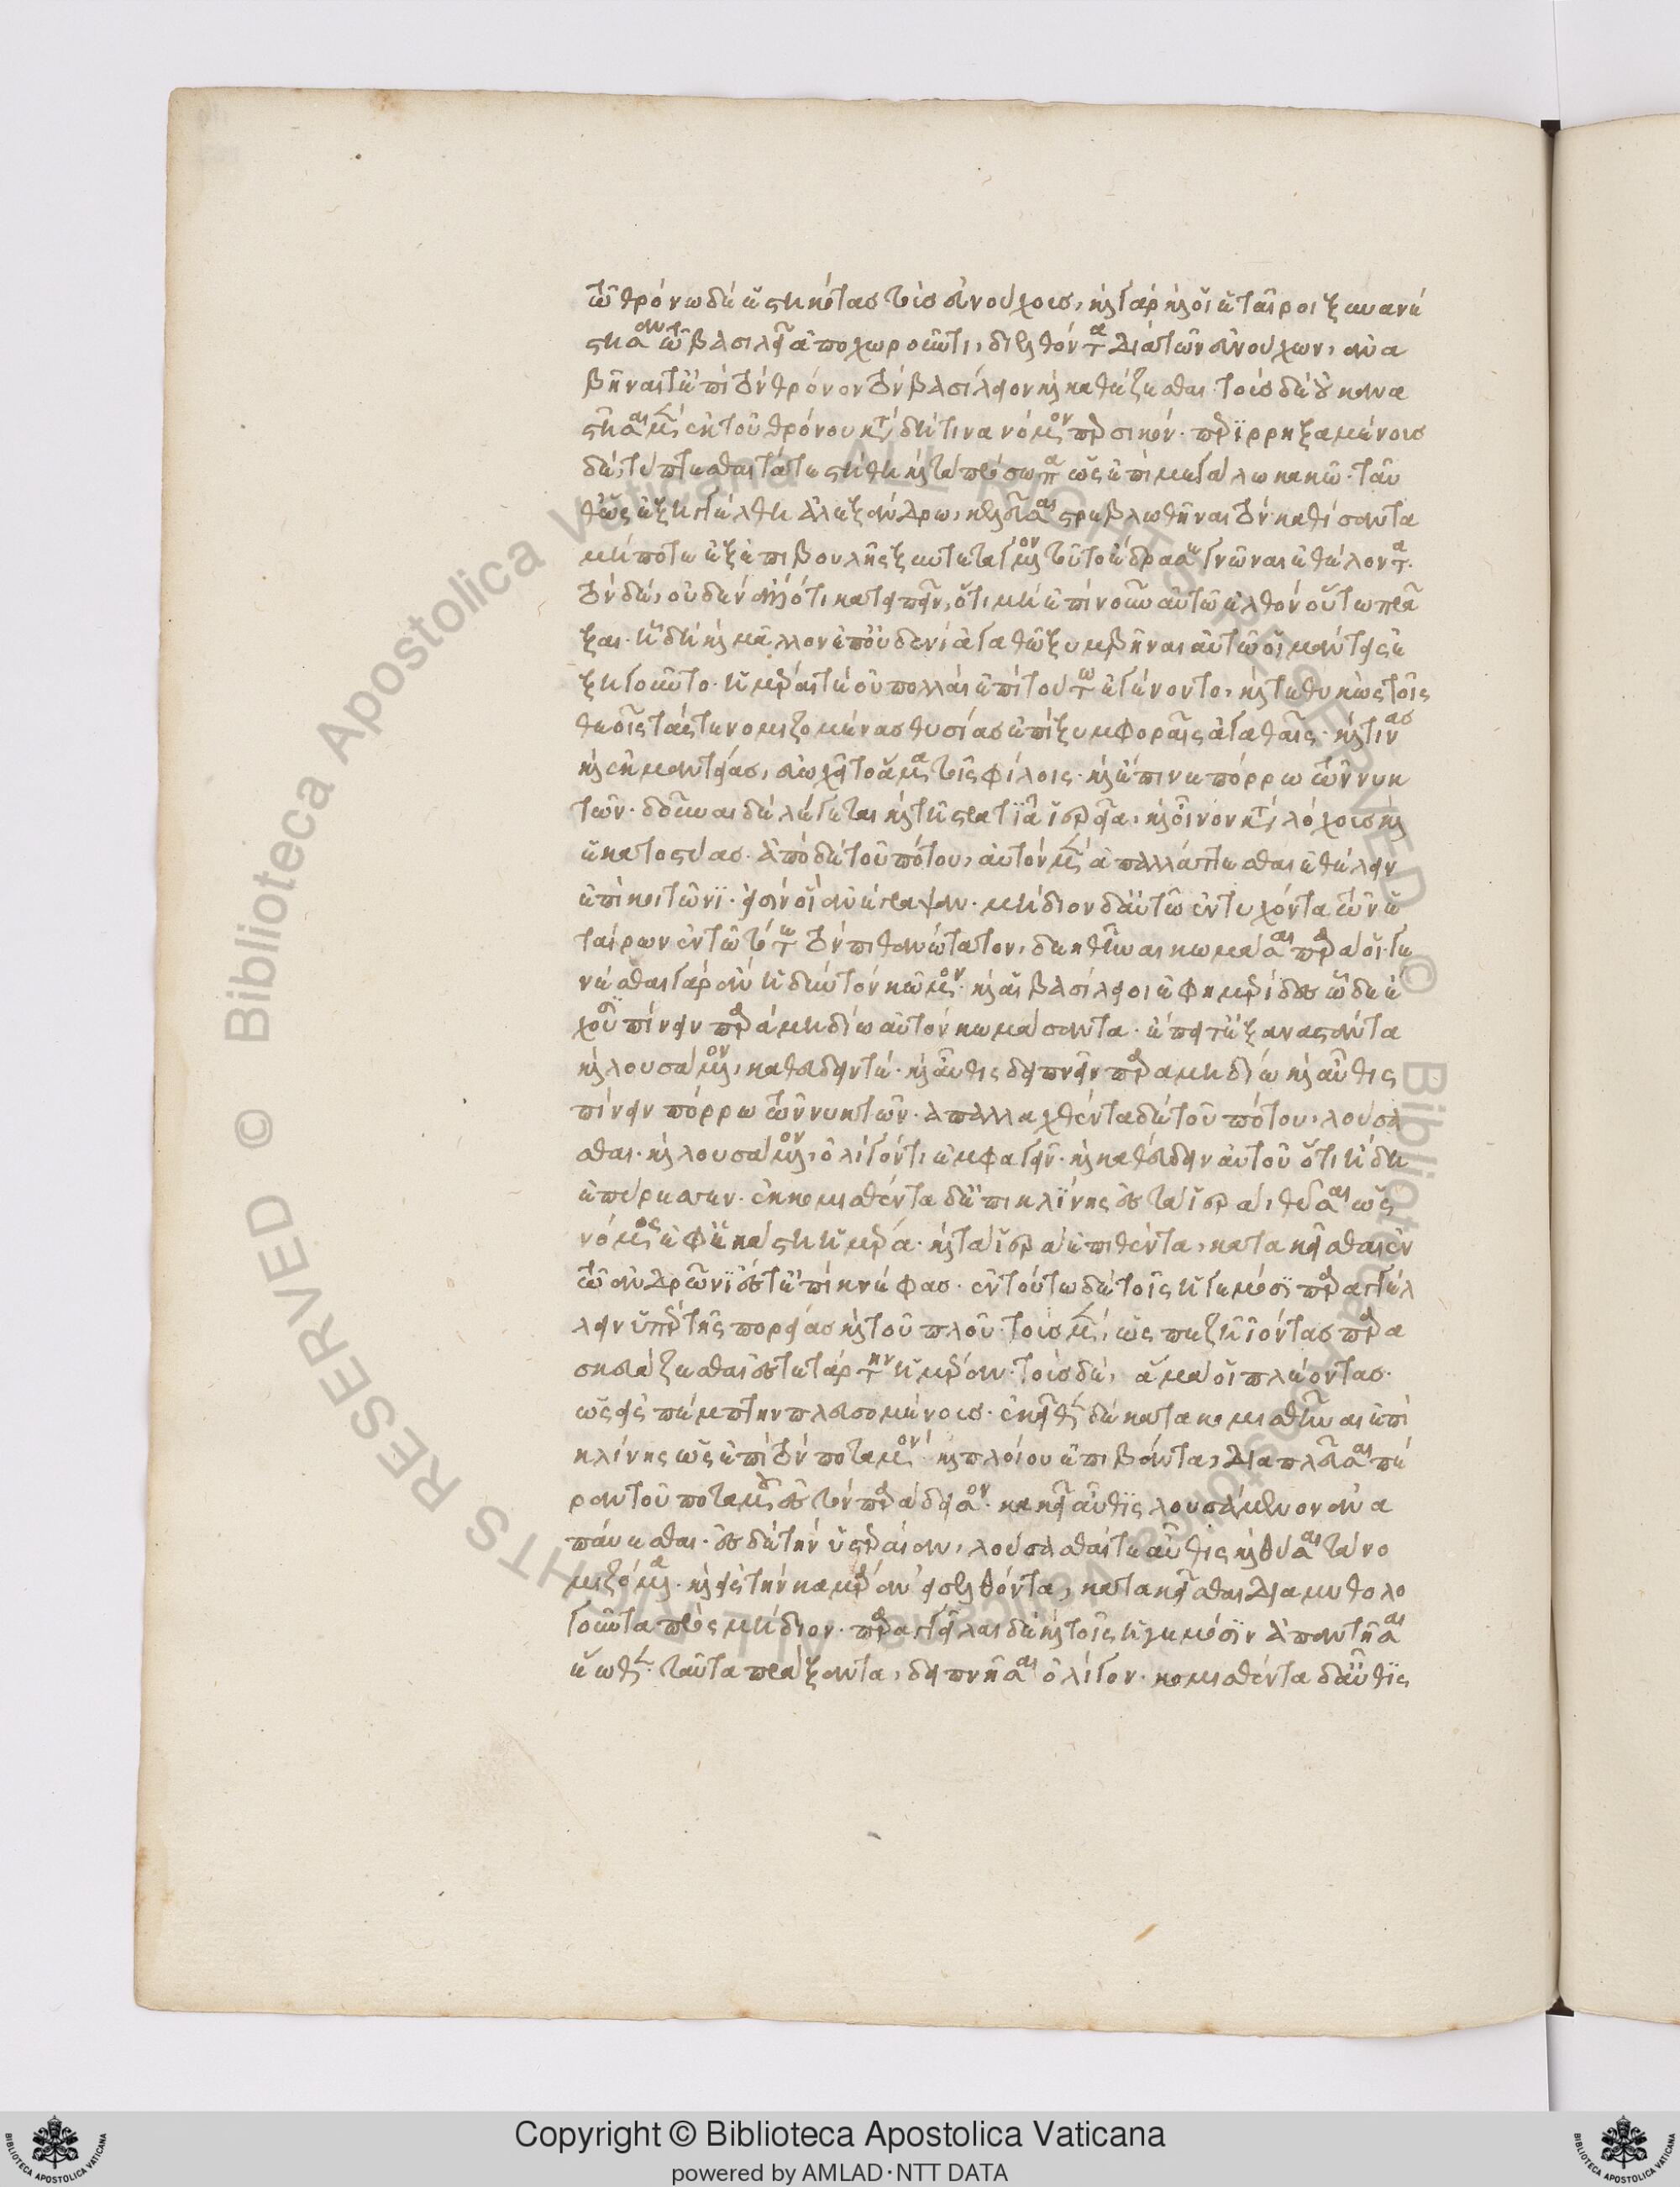 τῶ θρόνω δὲ ἑστηκότας τοὺς εὐνούχους, καὶ γὰρ καὶ οἱ ἑταῖροι ξυνανέ
στησαν τῶ βασιλεῖ ἀποχωροῦντι, διελθόντα διὰ τῶν εὐνούχων, ἀνα
βῆναι τὲ ἐπὶ τὸν θρόνον τὸν βασίλειον καὶ καθέζεσθαι. τοὺς δὲ οὐκ ἀνα
στῆσαι μὲν ἐκ τοῦ θρόνου κατὰ δή τινα νόμον περσικόν. περϊρρηξαμένους
δὲ, τύπτεσθαι τά τε στήθη καὶ τὰ πρόσωπα ὡς ἐπὶ μεγάλω κακῶ. ταῦ
θ' ὡς ἐξηγγέλθη ἀλεξάνδρω, κελεῦσαι στρεβλωθῆναι τὸν καθίσαντα
μήποτε ἐξ ἐπιβουλῆς ξυντεταγμένον τοῦτο ἔδρασε γνῶναι ἐθέλοντα.
τὸν δὲ, οὐδὲν ἄλλό τι κατειπεῖν, ὅτι μὴ ἐπὶ νοῦν αὐτῶ ἐλθὸν οὕτω πρᾶ
ξαι. ἧ δὴ καὶ μᾶλλον ἐπ' οὐδενὶ ἀγαθῶ ξυμβῆναι αὐτῶ οἱ μάντεις ἐ
ξηγοῦντο. ἡμέραι τὲ οὐ πολλαὶ ἐπὶ τούτω ἐγένοντο, καὶ τεθυκὼς τοῖς
θεοῖς τάς τε νομιζομένας θυσίας ἐπὶ ξυμφοραῖς ἀγαθαῖς. καί τινας
καὶ ἐκ μαντείας, εὐωχεῖτο ἅμα τοῖς φίλοις. καὶ ἔπινε πόρρω τῶν νυκ
τῶν. δοῦναι δὲ λέγεται καὶ τῆ στρατϊᾶ ἱερεῖα, καὶ οἶνον κατὰ λόχους καὶ
ἑκατοστύας. ἀπὸ δὲ τοῦ πότου, αὐτὸν μὲν ἀπαλλάττεσθαι ἐθέλειν
ἐπὶ κοιτῶνϊ. εἰσὶν οἳ ἀνέγραψαν. μήδιον δ' αὐτῶ ἐντυχόντα τῶν ἑ
ταίρων ἐν τῶ τότε τὸν πιθανώτατον, δεηθῆναι κωμάσαι παρὰ οἷ. γε
νέσθαι γὰρ ἂν ἡδὺν τὸν κῶμον. καὶ αἱ βασίλειοι ἐφημερίδες ὧδε ἔ
χουσϊ πίνειν παρὰ μηδίω αὐτὸν κωμάσαντα. ἔπειτ' ἐξαναστάντα
καὶ λουσάμενον, καθεύδειν τέ. καὶ αὖθις δειπνεῖν παρὰ μηδίω καὶ αὖθις
πίνειν πόρρω τῶν νυκτῶν. ἀπαλλαχθέντα δὲ τοῦ πότου, λούσα
σθαι. καὶ λουσάμενον, ὀλίγόν τι ἐμφαγεῖν. καὶ καθεύδειν αὐτοῦ ὅτι ἤδη
ἐπύρεσσεν. ἐκκομισθέντα δ' ἐπι κλίνης ἐς τὰ ἱερὰ, θῦσαι ὡς
νόμος ἐφ' ἑκάστη ἡμέρα. καὶ τὰ ἱερὰ ἐπιθέντα, κατακεῖσθαι ἐν
τῶ ἀνδρῶνϊ ἔς τε ἐπὶ κνέφας. ἐν τούτω δὲ τοῖς ἡγεμόσϊ παραγγέλ
λειν ὑπὲρ τῆς πορείας καὶ τοῦ πλοῦ. τοὺς μὲν, ὡς πεζῆ ἰόντας παρα
σκευάζεσθαι ἐς τετάρτην ἡμέραν. τοὺς δὲ, ἅμα οἷ πλέοντας.
ὡς εἰς πέμπτην πλευσομένους. ἐκεῖθεν δὲ κατακομισθῆναι ἐπὶ
κλίνης ὡς ἐπὶ τὸν ποταμὸν. καὶ πλοίου ἐπιβάντα, διαπλεῦσαι πέ
ραν τοῦ ποταμοῦ ἐς τὸν παράδεισον. κακεῖ αὖθϊς λουσάμενον ἀνα
παύεσθαι. ἐς δὲ τὴν ὑστεραίαν, λούσασθαί τε αὖθις καὶ θῦσαι τὰ νο
μιζόμενα. καὶ εἰς τὴν καμάραν εἰσελθόντα, κατακεῖσθαι διαμυθολο
γοῦντα πρὸς μήδιον. παραγγεῖλαι δὲ καὶ τοῖς ἡγεμόσϊν ἀπαντῆσαι
ἕωθεν. ταῦτα πράξαντα, δειπνῆσαι ὀλίγον. κομισθέντα δ' αὖθϊς